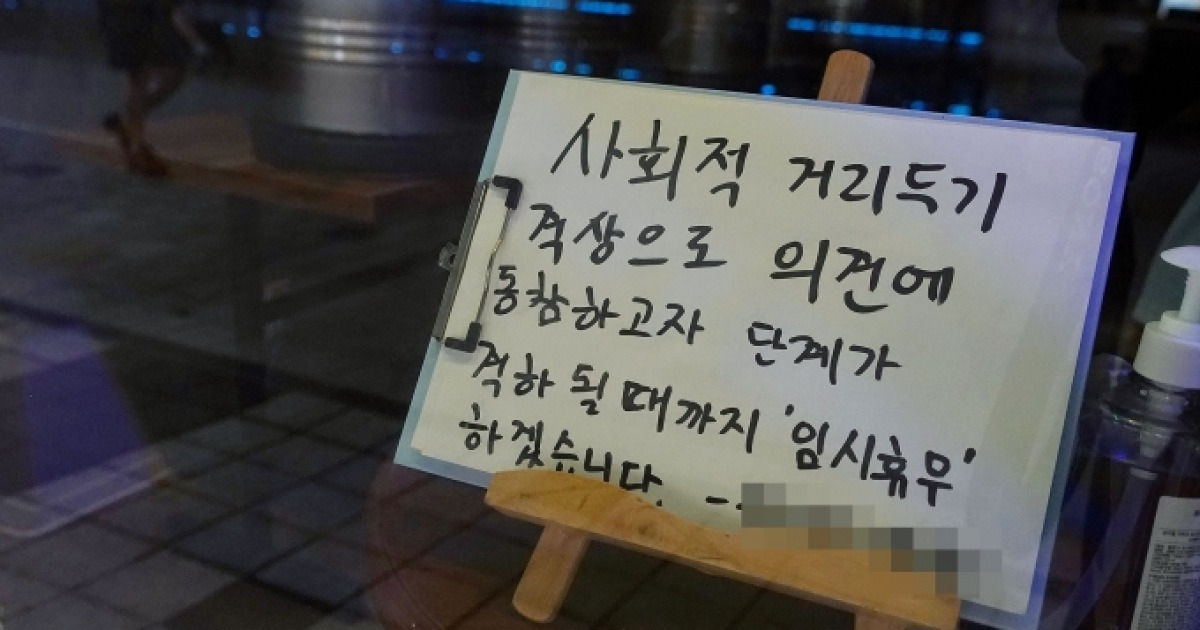 사회적 거리두기
격상으로 의견에
동참하고자 단계가
격하 될 때까지 '임시휴무'
하겠습니다.